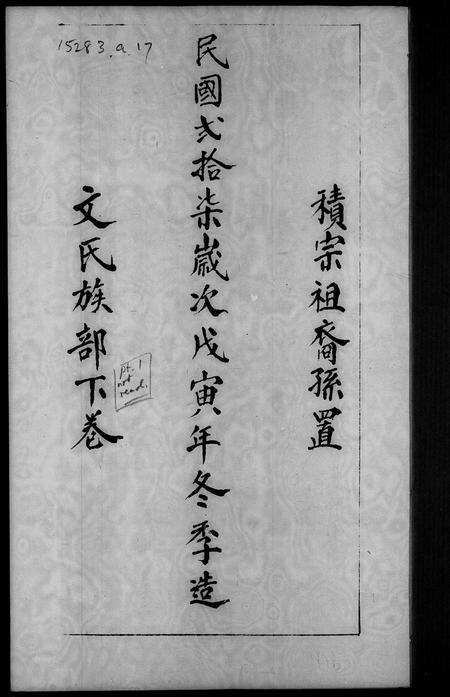 15283.a.17
積宗祖裔孫置
民國弍拾柒歲次戊寅年冬季造
文氏族部下卷
pt. 1
not
recd.